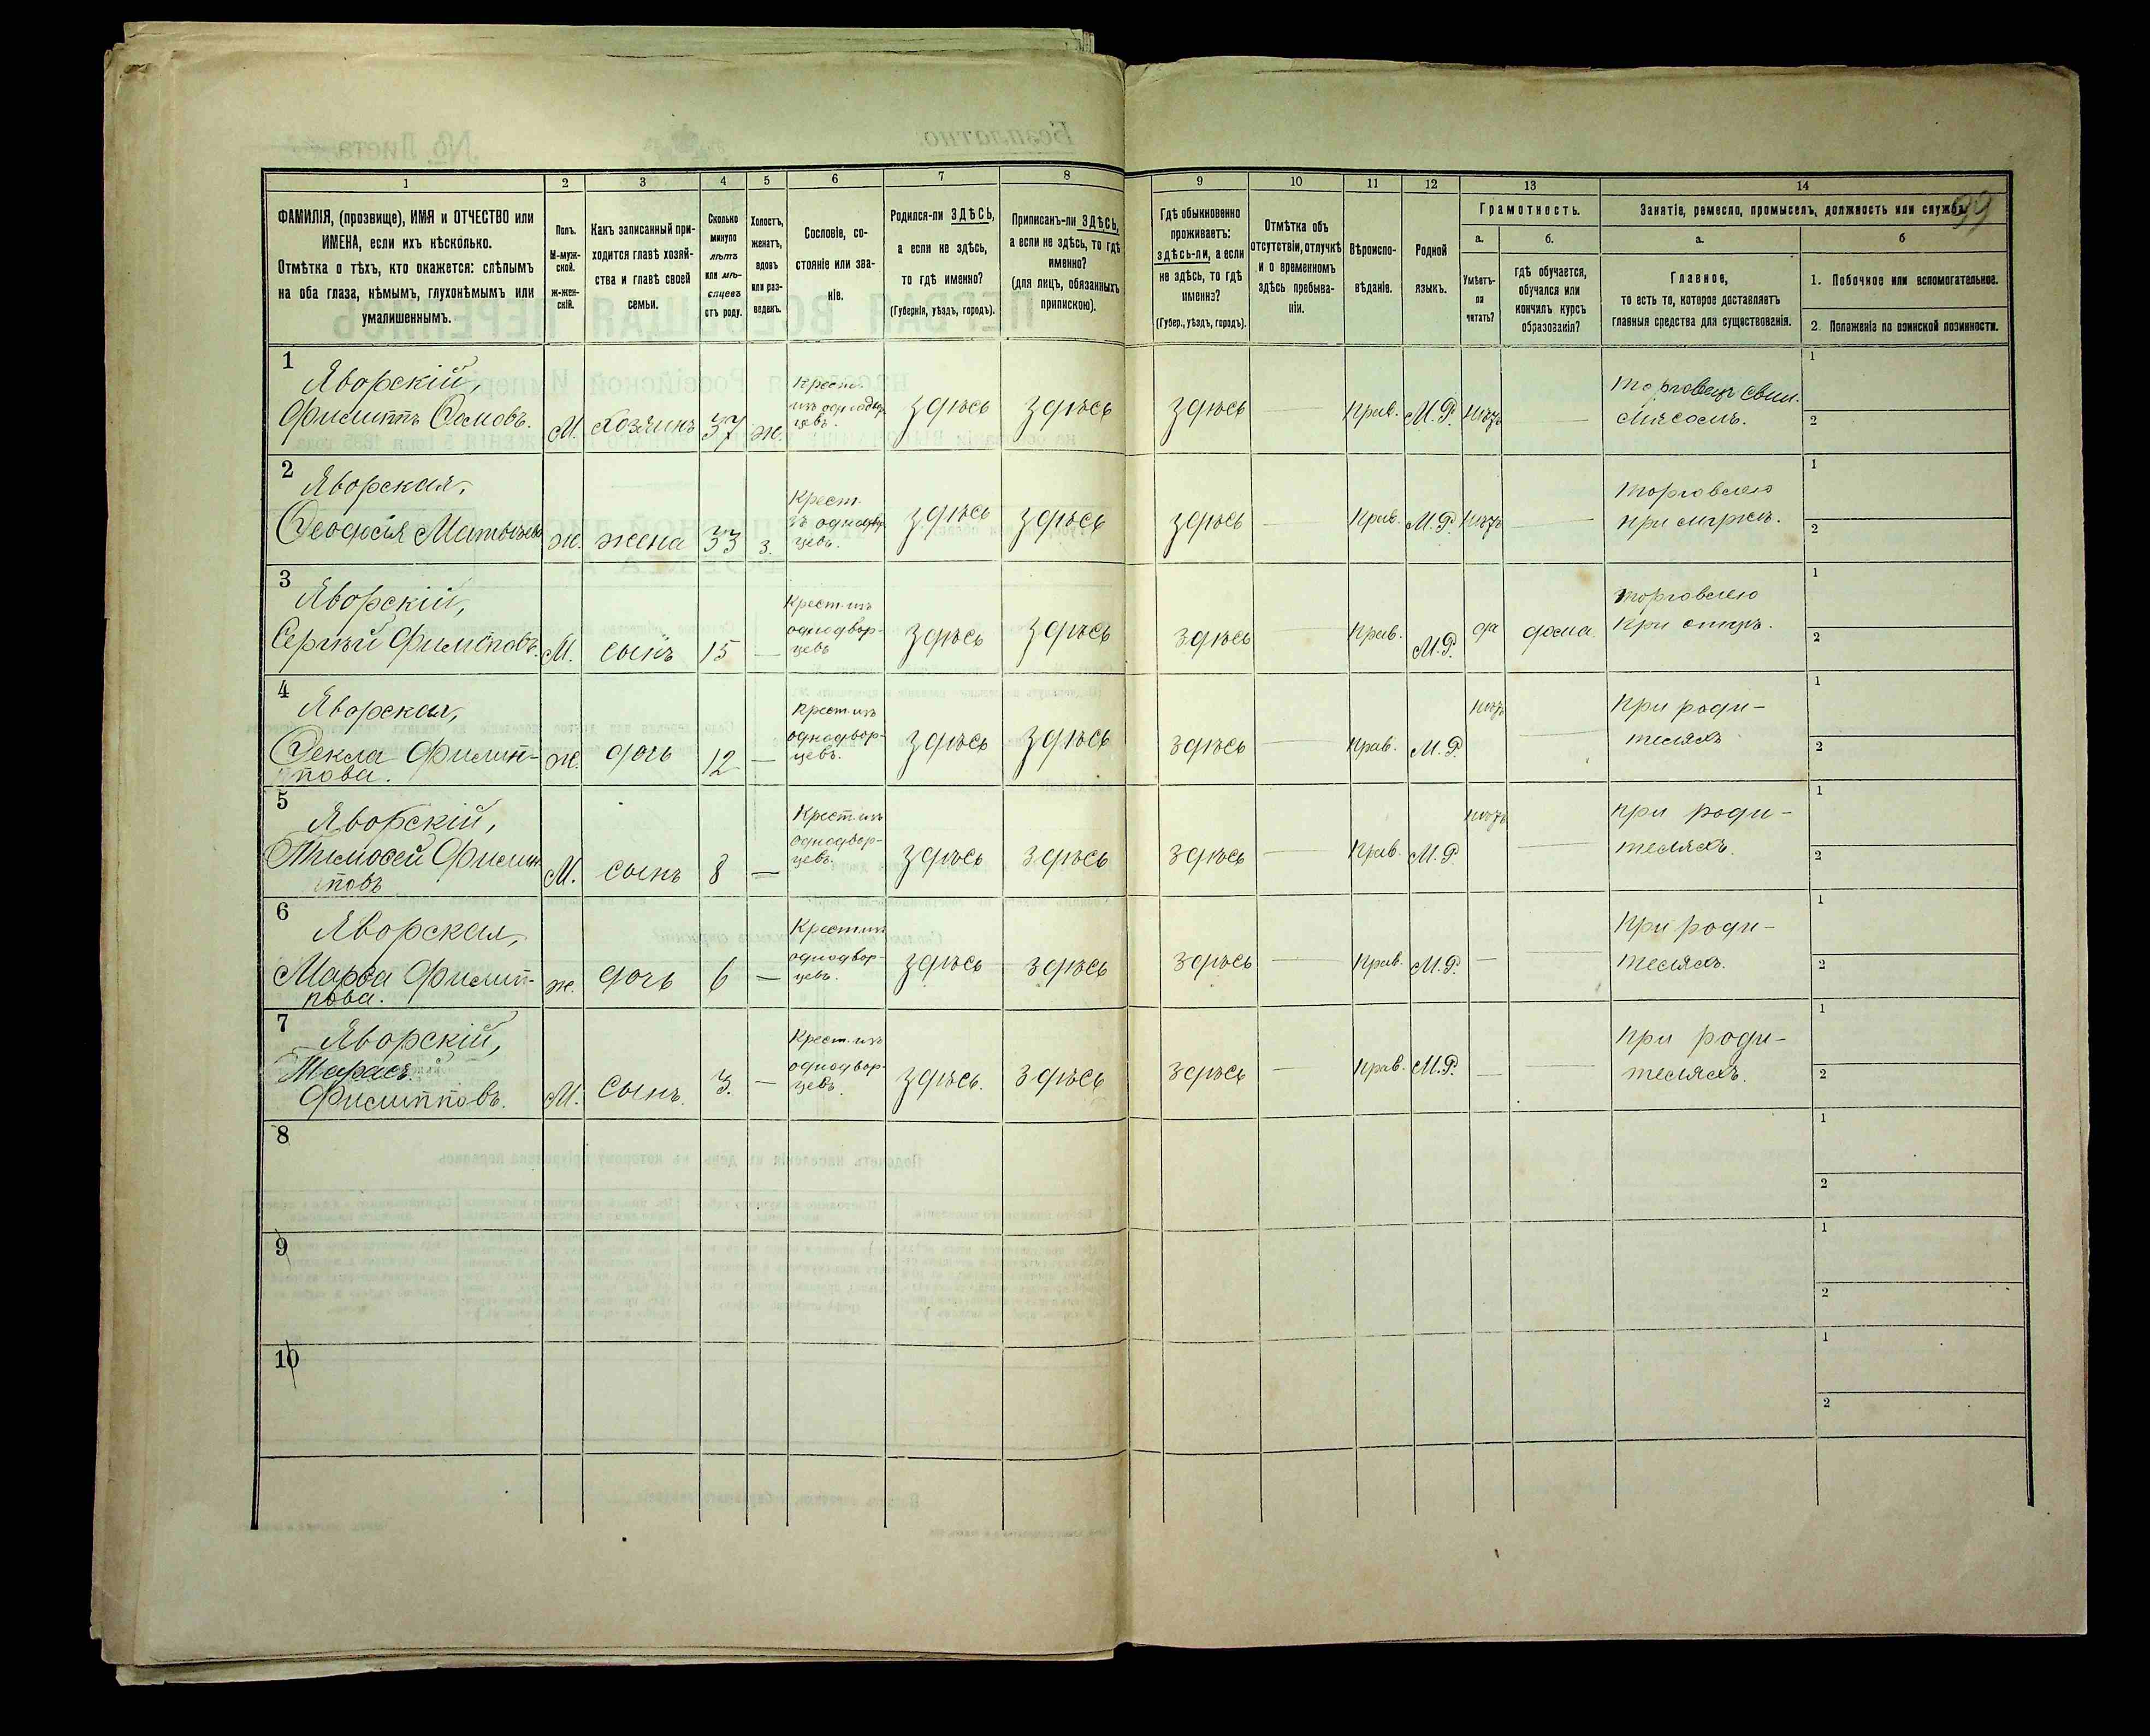 99
1 2 3 4 5 6 7 8 9 10 11 12 13 14
ФАМИЛІЯ, (прозвище), ИМЯ и ОТЧЕСТВО или
ИМЕНА, если ихъ нѣсколько.
Отмѣтка о тѣхъ, кто окажется: слѣпымъ
на оба глаза, нѣмымъ, глухонѣмымъ или
умалишеннымъ.
Полъ.
М-муж-
ской.
ж-жен-
скій.
Какъ записанный при-
ходится главѣ хозяй-
ства и главѣ своей
семьи.
Сколько
минуло
лѣтъ
или мѣ-
сяцевъ
отъ роду.
Холостъ,
женатъ,
вдовъ
или раз-
веденъ.
Сословіе, со-
стояніе или зва-
ніе.
Родился-ли ЗДѢСЬ,
а если не здѣсь,
то гдѣ именно?
(Губернія, уѣздъ, городъ).
Приписанъ-ли ЗДѢСЬ,
а если не здѣсь, то гдѣ
именно?
(для лицъ, обязанныхъ
припискою).
Гдѣ обыкновенно
проживаетъ:
здѣсь-ли, а если
не здѣсь, то гдѣ
именно?
(Губер., уѣздъ, городъ).
Отмѣтка объ
отсутствіи, отлучкѣ
и о временномъ
здѣсь пребыва-
ніи.
Вѣроиспо-
вѣданіе.
Родной
языкъ.
Грамотность.
а.
Умѣетъ-
ли
читать?
б.
гдѣ обучается,
обучался или
кончилъ курсъ
образованія?
Занятіе, ремесло, промыселъ, должность или служба.
а.
Главное,
то есть то, которое доставляетъ
главныя средства для существованія.
б
1. Побочное или вспомогательное.
2. Положеніе по воинской повинности.
1
Яворскій,
Филиппъ Ѳомовъ.
М. хозяинъ 37 ж.
Крест.
изъ однодвор-
цевъ.
здѣсь здѣсь здѣсь Прав. М.Р. нѣтъ
торговецъ свин.
мясомъ.
1
2
2
Яворская,
Ѳеодосія
ж. жена 33 з.
Крест.
изъ однодвор
цевъ.
здѣсь здѣсь здѣсь Прав. М.Р. нѣтъ
торговлею
при мужѣ.
1
2
3
Яворскій,
Сергѣй Филиповъ.
М. сынъ 15 —
Крест. изъ
однодвор-
цевъ
здѣсь здѣсь здѣсь Прав. М.Р. да дома
торговлею
при отцѣ.
1
2
4
Яворская,
Ѳекла Филип-
пова.
ж. дочь 12 —
Крест. изъ
однодвор-
цевъ.
здѣсь здѣсь здѣсь Прав. М.Р. нѣтъ
При роди-
теляхъ
1
2
5
Яворскій,
Тимоѳей Филип
повъ
М. сынъ 8 —
Крест. изъ
однодвор-
цевъ.
здѣсь здѣсь здѣсь Прав. М.Р. нѣтъ
при роди-
теляхъ.
1
2
6
Яворская,
Марѳа Филип-
пова.
ж. дочь 6 —
Крест. изъ
однодвор-
цевъ.
здѣсь здѣсь здѣсь Прав. М.Р. —
При роди-
теляхъ.
1
2
7
Яворскій,
Тарасъ.
Филипповъ.
М. сынъ. 3. —
Крест. изъ
однодвор-
цевъ.
здѣсь. здѣсь здѣсь Прав. М.Р. —
при роди-
теляхъ.
1
2
8
1
2
9
1
2
10
1
2